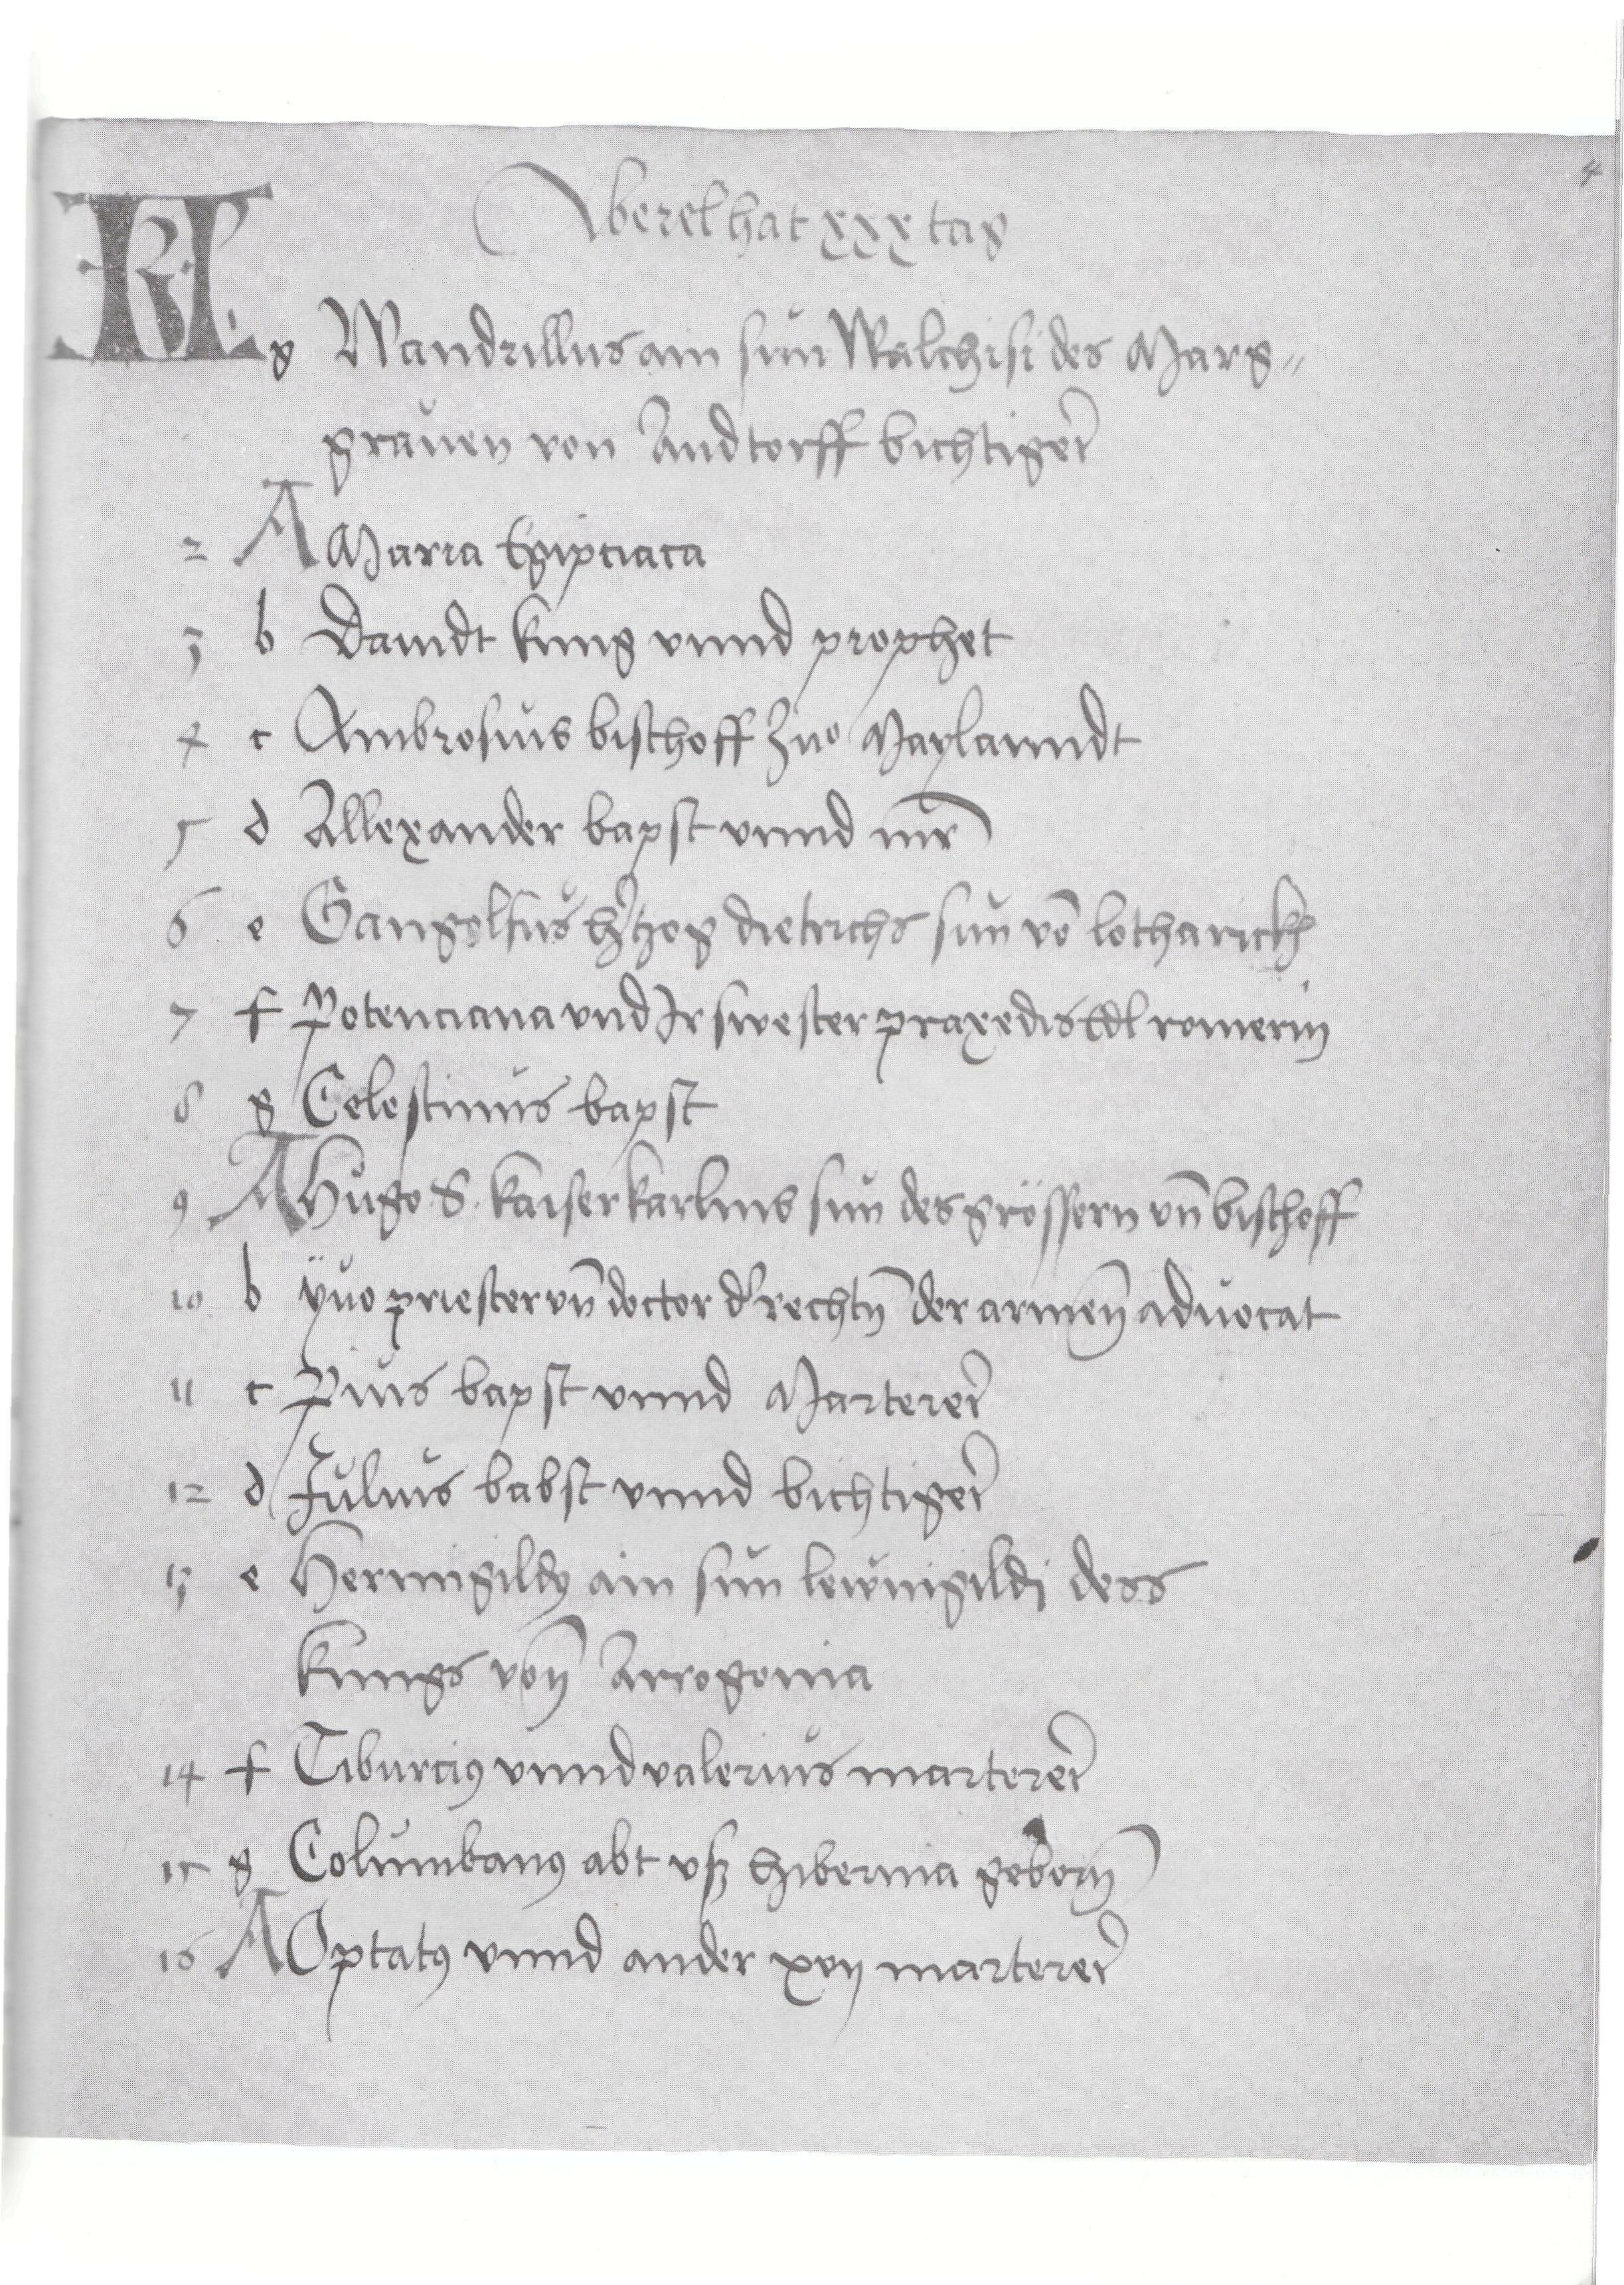 4
Aberel hat xxx tag
KL g Wandrillus ain sun Walchisi des Marg=
grauen von Andtorff bichtiger
2 A Maria Egipciaca
3 b Dauidt kung vnnd prophet
4 c Ambrosius bischoff zuo Maylanndt
5 d Allexander bapst vnnd mr̄
6 e Gangolfus h'tzog dietrichs sun vō lotharickh
7 f Potenciana vnd Ir swester praxedis Edl romerin
8 g Celestinus bapst
9 A Hugo S. kaiser karlins sun des grössern vn̄ bischoff
10 b ÿuo priester vn̄ doctor d' rechtn̄ der armen̄ aduocat
11 c Pius bapst vnnd Marterer
12 d Julius babst vnnd bichtiger
13 e Hermigildꝰ ain sun lewigildi dess
kungs von̄ Arrogonia
14 f Tiburciꝰ vnnd valerius marterer
15 g Columbanꝰ abt vsz hibernia geborn̄
16 A Optatꝰ vnnd ander xvij marterer